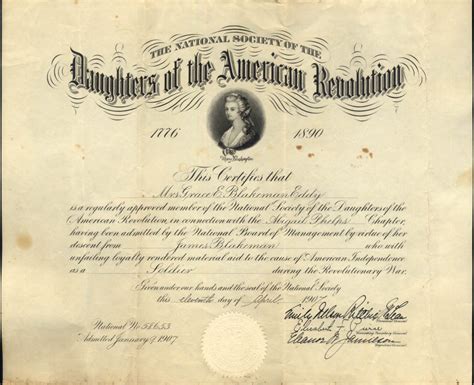 THE NATIONAL SOCIETY OF THE
Daughters of the American Revolution
1776 1890
This Certifies that
Mrs Grace E. Blakeman Eddy
is a regularly approved member of the National Society of the Daughters of the
American Revolution, in connection with the Abigail Phelps Chapter,
having been admitted by the National Board of Management by virtue of her
descent from James Blakeman who with
unfailing loyalty rendered material aid to the cause of American Independence
as a Soldier during the Revolutionary War.
Given under our hands and the seal of the National Society
this eleventh day of April 1907
National No 58653
Admitted January 9 1907
Elisabeth F. Pierce
Eleanor W. Jamieson